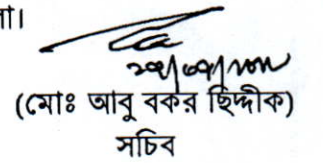 া।
(মোঃ আবু বকর ছিদ্দীক)
সচিব